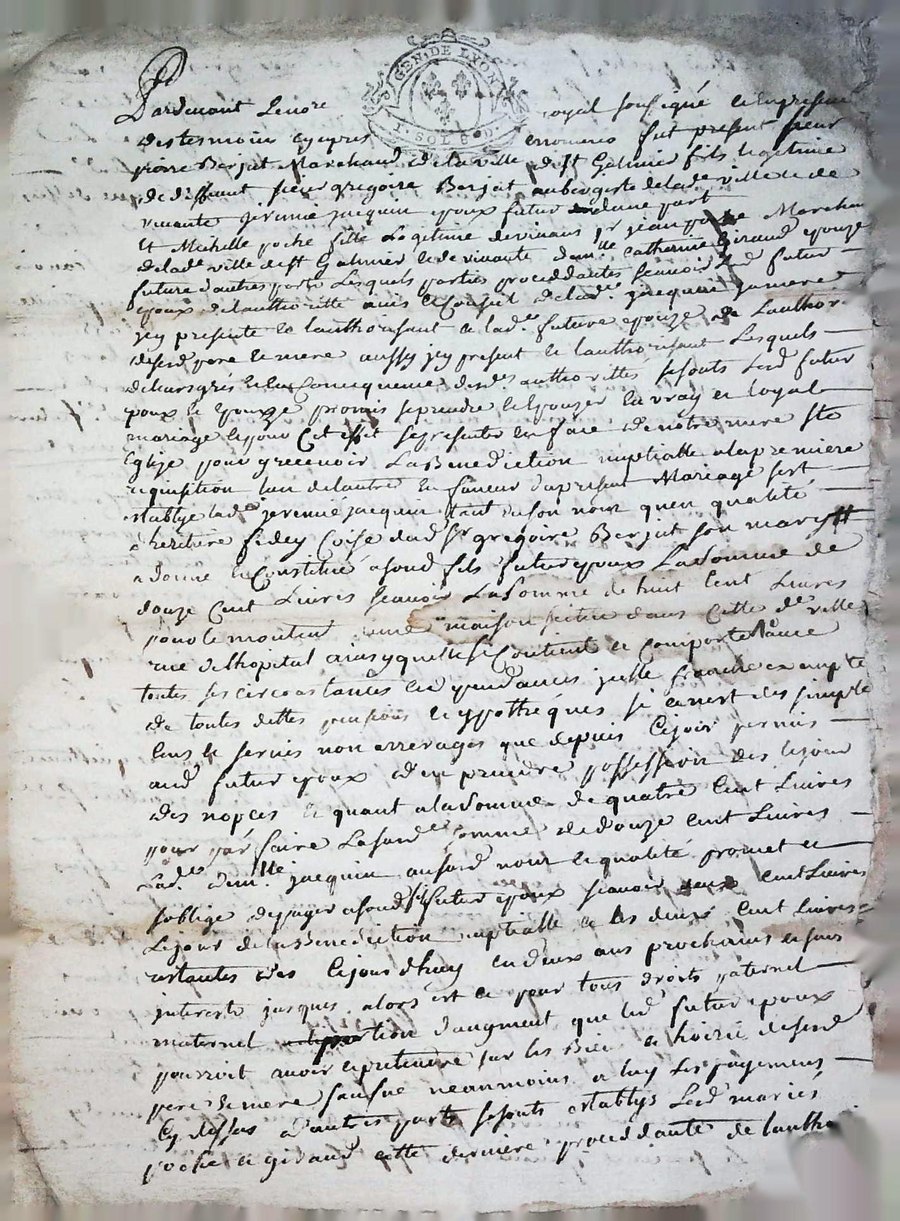 GEN. DE LYON
Pardevant Le no.re royal soussigné et en presence
des tesmoins cy apres nommés fut present sieur
pierre Berjat Marchand de la ville de St Galmier fils legitime
de deffunt sieur gregoire Berjat aubergiste de lade ville et de
vivante jeremie jacquin epoux futur dune part
Et Michelle poche fille Legitime de vivans sr jean poche Marchand
de lade ville de St Galmier et de vivante dam.lle Catherine Giraud epouze
future dautres parts Lesquels parties proceddantes scavoir Led futur
epoux de lauthorité avis et Conseil de lade jacquin sa mere
jcy presente et lauthorisant et lade future epouze de Lauthorité
desesd pere et mere aussy jcy present et lauthorisant Lesquels
de leurs grés et en Conséquence desdes authorittés se sont Led futur
epoux et Epouze promis se prendre et Epouzer en vray et loyal
mariage et pour Cet effet se presenter en face de notre mere Ste
Eglize pour y recevoir La Benediction nuptialle a la premiere
requisition lun de lautre En faveur du present Mariage sest
establye lade jeremie jacquin tant en son nom quen qualité
d'heritiere fidey Comise dud sr gregoire Berjat son mary
a donné et Constitué asond fils futur epoux La Somme de
douze Cent Livres scavoir La Somme de huit Cent Livres
pour le montant d'une maison scittuée dans Cette de ville
rue de lhopital ainsy quelle se Contient et Comporte avec
toutes ses circonstances et dependances jcelle franche et exempte
de toutes dettes pensions et hypothéques si ce nest des simple
Cens et servis non arrerages que depuis Cejour permis
aud futur epoux den prendre possession des lejour
des nopces Et quant a la Somme de quatre Cent Livres
pour parfaire Lasusde somme de douze Cent Livres
Lade dem.lle jacquin aususd nom et qualité promet et
soblige de payer asond futur epoux scavoir deux Cent Livres
Lejour de la Benediction nuptialle et les deux Cent Livres
restantes des Cejourdhuy en deux ans prochains et sans
interests jusques alors et ce pour tous droits paternel
maternel portion d'augment que led futur epoux
pourroit avoir et pretendre sur les Biens et hoirie desesd
pere et mere saufve neanmoins a luy Les payemens
Cy dessus d'autres parts se sont establys Lesd mariés
poche et giraud cette derniere proceddante de lautho